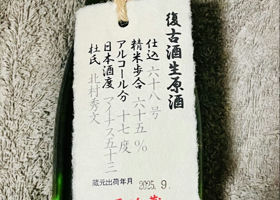 復古酒生原酒
仕込 六十八号
精米歩合 六十五%
アルコール分 十七度
日本酒度 マイナス五十三
杜氏 北村秀文
蔵元出荷年月 2025.9.